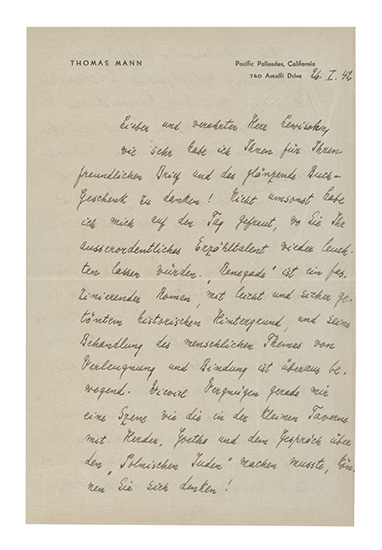 THOMAS MANN
Pacific Palisades, California
740 Amalfi Drive 26. I. 42
Lieber und verehrter Herr Lewisohn,
wie sehr habe ich Ihnen für Ihren
freundlichen Brief und das glänzende Buch-
Geschenk zu danken! Nicht umsonst habe
ich mich auf den Tag gefreut, wo Sie Ihr
ausserordentliches Erzähltalent wieder leuch-
ten lassen würden. "Renegade" ist ein fas-
zinierender Roman, mit leicht und sicher ge-
töntem historischen Hintergrund, und seine
Behandlung des menschlichen Themas von
Verleugnung und Bindung ist überaus be-
wegend. Wieviel Vergnügen gerade mir
eine Szene wie die in der kleinen Taverne
mit Herder, Goethe und dem Gespräch über
den "Polnischen Juden" machen musste, kön-
nen Sie sich denken!